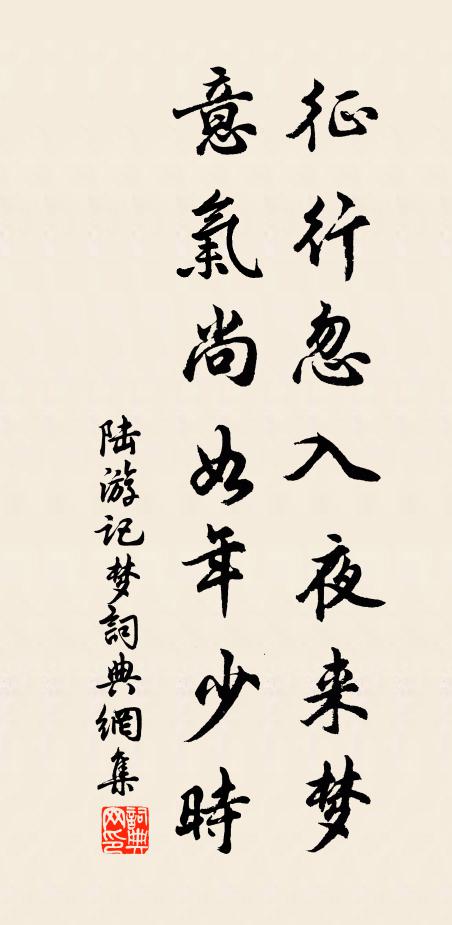 征行忽入夜来梦
意氣尚如年少時
陆游记梦詞典網集
詞典网印